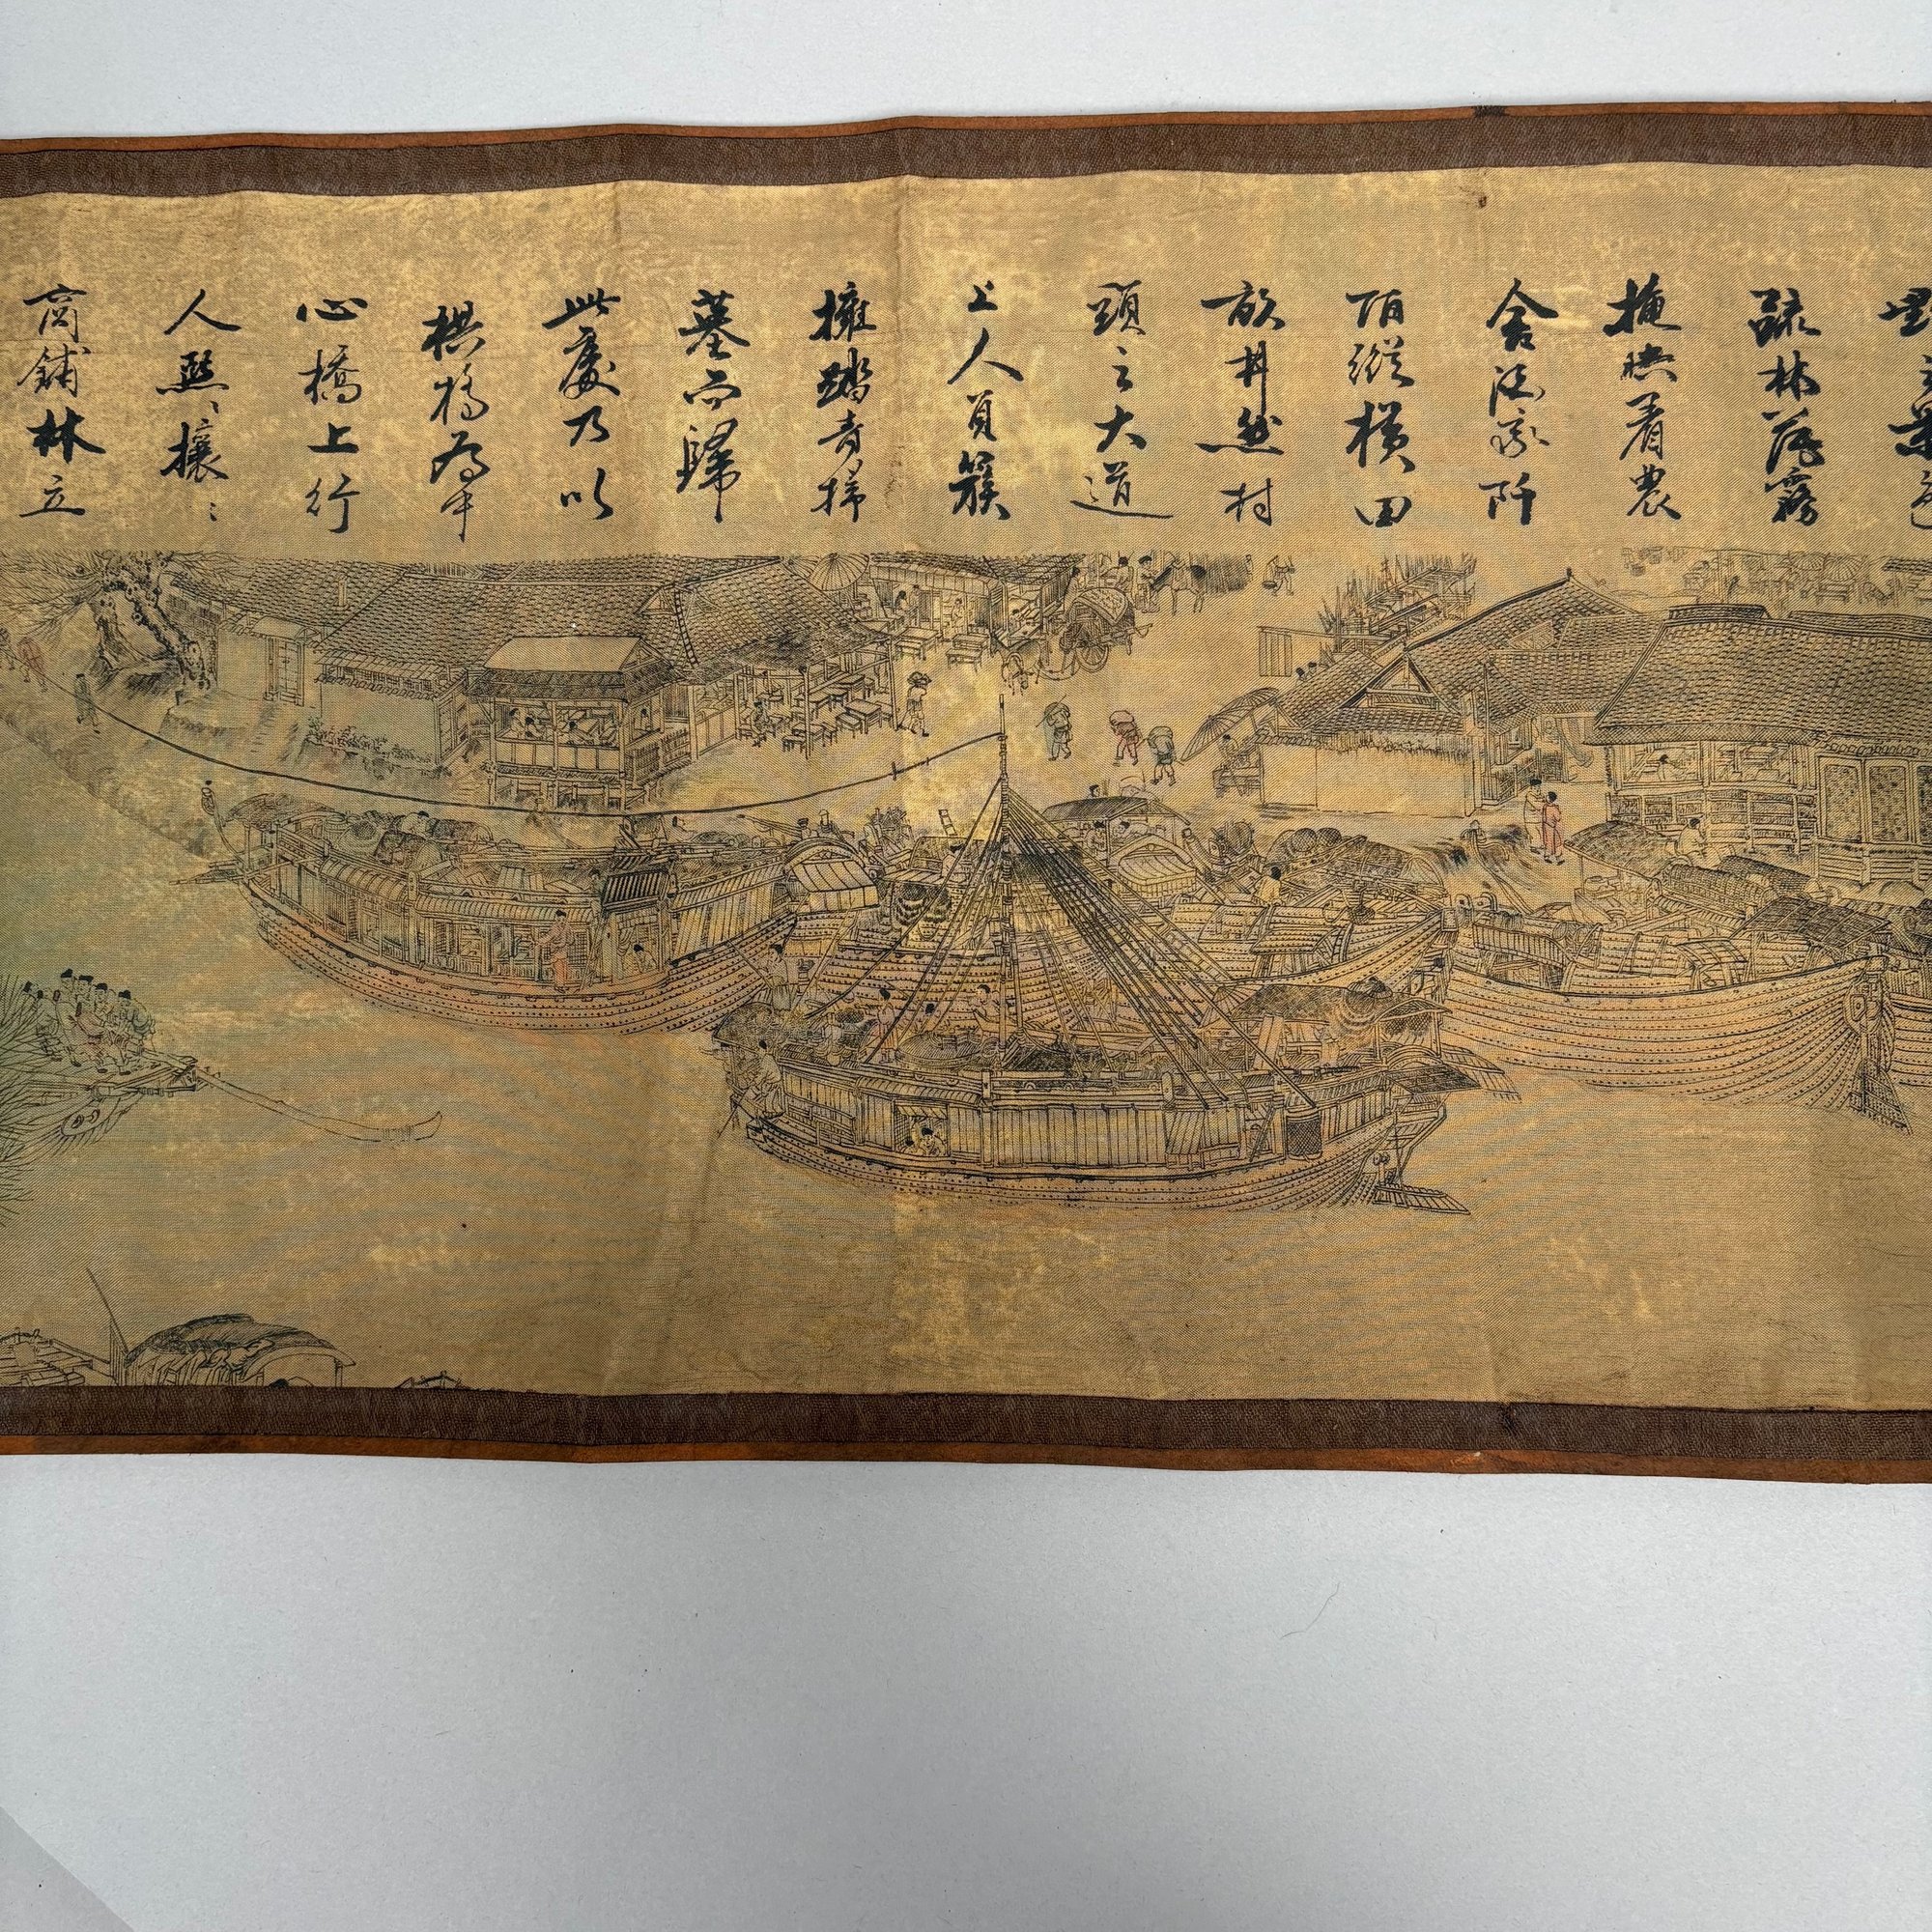 疏林薄霧
掩映着農
舍酒家阡
陌縱橫田
畝井然村
頭之大道
上人員簇
擁踏青掃
墓而歸
此處乃以
拱橋為中
心橋上行
人熙〻攘〻
商鋪林立